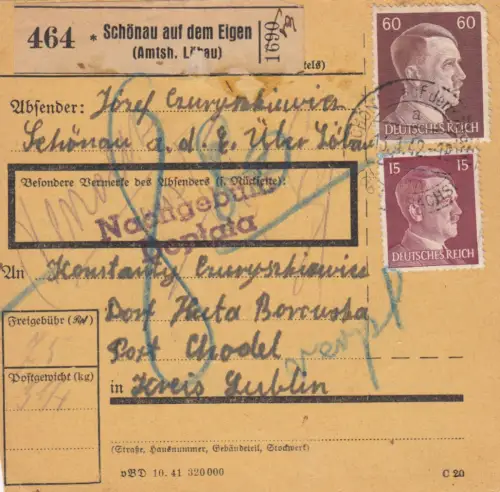 464 * Schönau auf dem Eigen
(Amtsh. Löbau)
1690
Absender: Józef Czuryszkiewicz
Schönau a. d. E. Über Löbau
Besondere Vermerke des Absenders (s. Rückseite):
Nachgebühr
Dopłata
An Konstanty Czuryszkiewicz
Dorf Huta Borcuska
Post Chodel
in Kreis Lublin
Freigebühr (RM)
75
Postgewicht (kg)
(Straße, Hausnummer, Gebäudeteil, Stockwerk)
vBD 10. 41 320 000
C 20
60 60
DEUTSCHES REICH
15 15
DEUTSCHES REICH